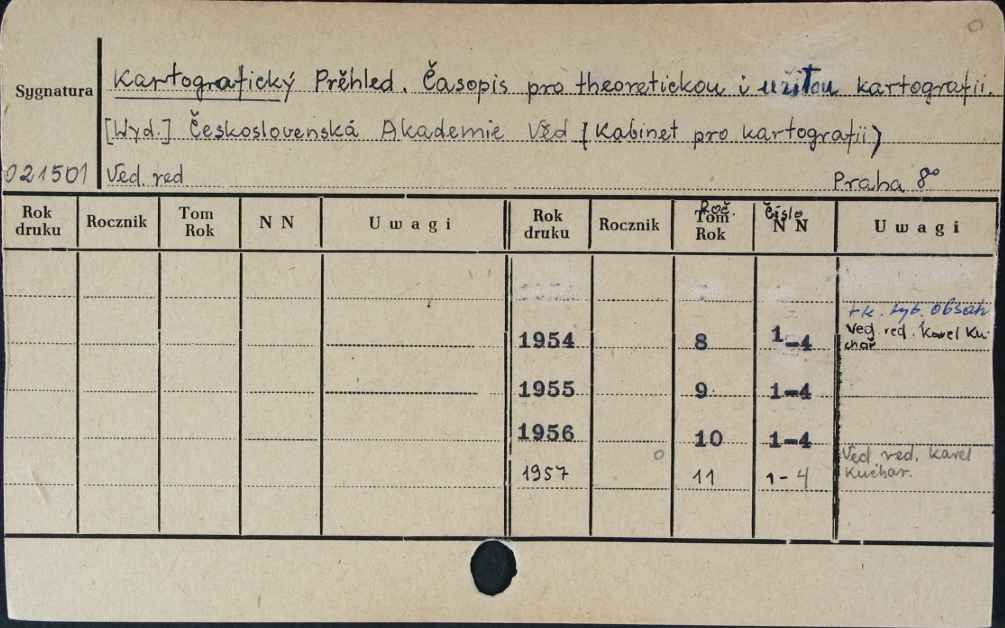 Sygnatura Kartografický Přěhled. Časopis pro theoretickou i užitou kartografii.
[Wyd.] Československá Akademie Věd (Kabinet pro kartografii)
021501 Ved. red Praha 8°
Rok druku Rocznik Tom Rok N N Uwagi Rok druku Rocznik Roč. Tom Rok Číslo N N Uwagi
obsah
1954 8 1-4 Ved. red. Karel Kuchař
1955 9 1-4
1956 10 1-4
1957 11 1-4 Ved. red. Karel Kuchar.